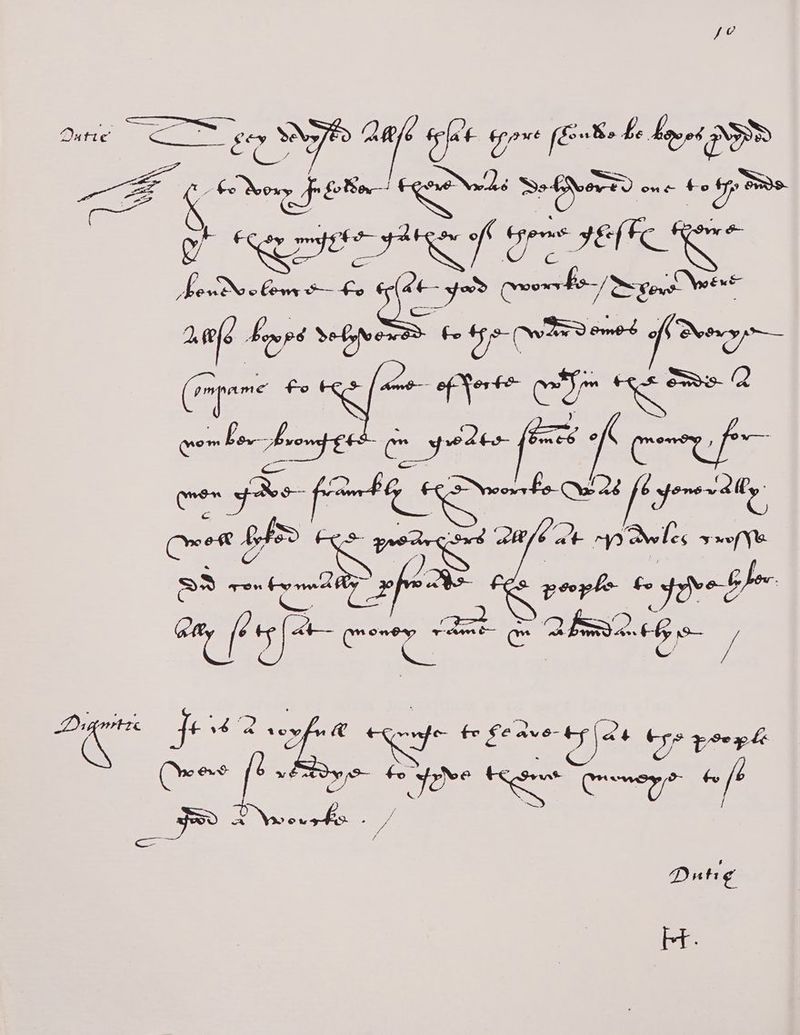 10
Dutie They devysed Allso that there shoulde be boxes pvyded
& to every Inholder there was delyvered one to the ende
yt they myghte gather off theire gheste theire
benevolence to that good worcke / There were
Allso boxes delyvered to the wardennes off everye
Companie to the same effecte wthin the ende A
nomber broughte in greate somes off money, for
men gave franckly the worcke was so generally
well lyked the preachers allso at Pawles crosse
did contynually pswade the people to gyve lyber-
ally so that money came in Abundantlye /
Dignitie It is A ioyfull thynge to heare that the people
were so readye to gyve theire moneye to so
good A worcke . /
Dutie
H.